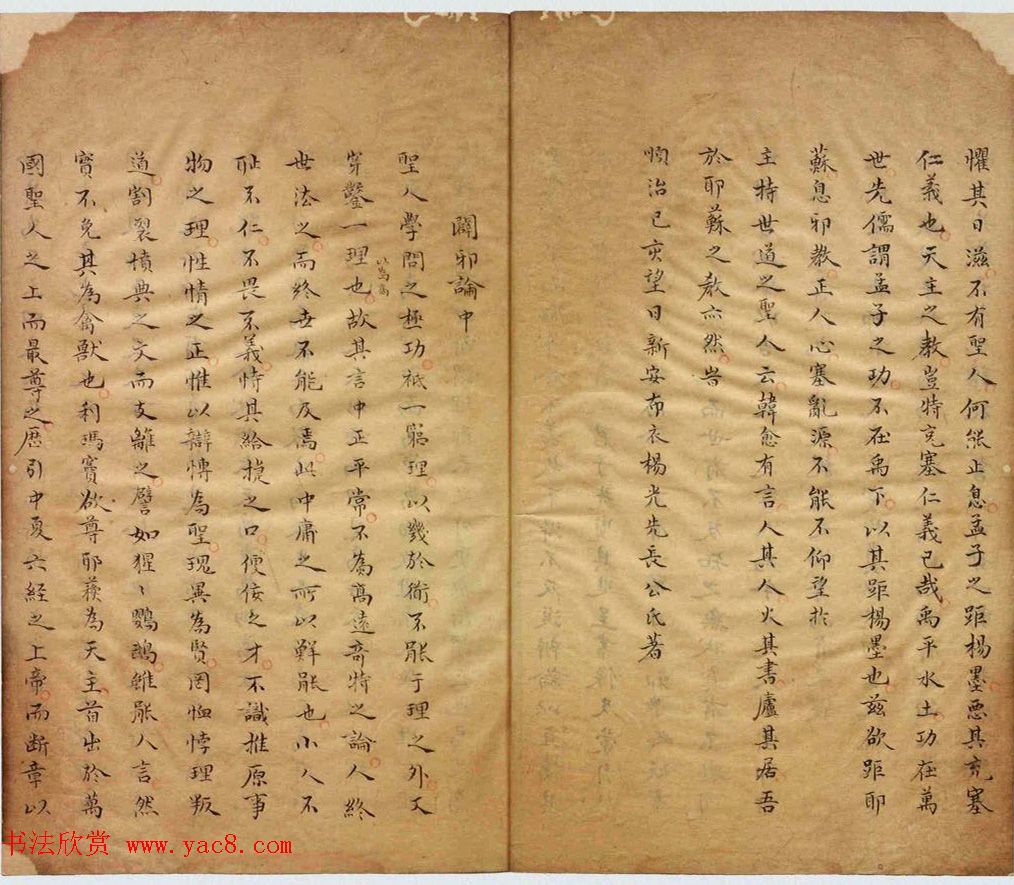 懼其日滋不有聖人何能止息孟子之距楊墨惡其充塞
仁義也天主之教豈特充塞仁義已哉禹平水土功在萬
世先儒謂孟子之功不在禹下以其距楊墨也茲欲距耶
蘇息邪教正人心塞亂源不能不仰望於
主持世道之聖人云韓愈有言人其人火其書廬其居吾
於耶蘇之教亦然旹
順治己亥望日新安布衣楊光先長公氏著
闢邪論中
聖人學問之極功祇一窮理以幾於衟不能于理之外又
穿鑿一理也以為高故其言中正平常不為高遠奇特之論人終
世法之而終世不能及焉此中庸之所以鮮能也小人不
恥不仁不畏不義恃其給捷之口便佞之才不識推原事
物之理性情之正惟以辯博為聖瑰異為賢罔恤悖理叛
道割裂墳典之文而支離之譬如猩〻鸚鵡雖能人言然
實不免其為禽獸也利瑪竇欲尊耶蘇為天主首出於萬
國聖人之上而最尊之歷引中夏六經之上帝而斷章以
书法欣赏 www.yac8.com